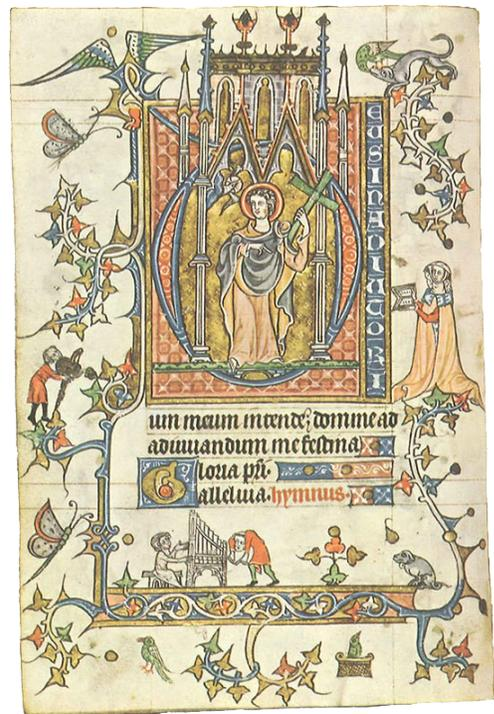 DEUSINADIUTORI
um meum intende: domine ad
adiuuandum me festina
Gloria pri.
alleluia. hymnus.